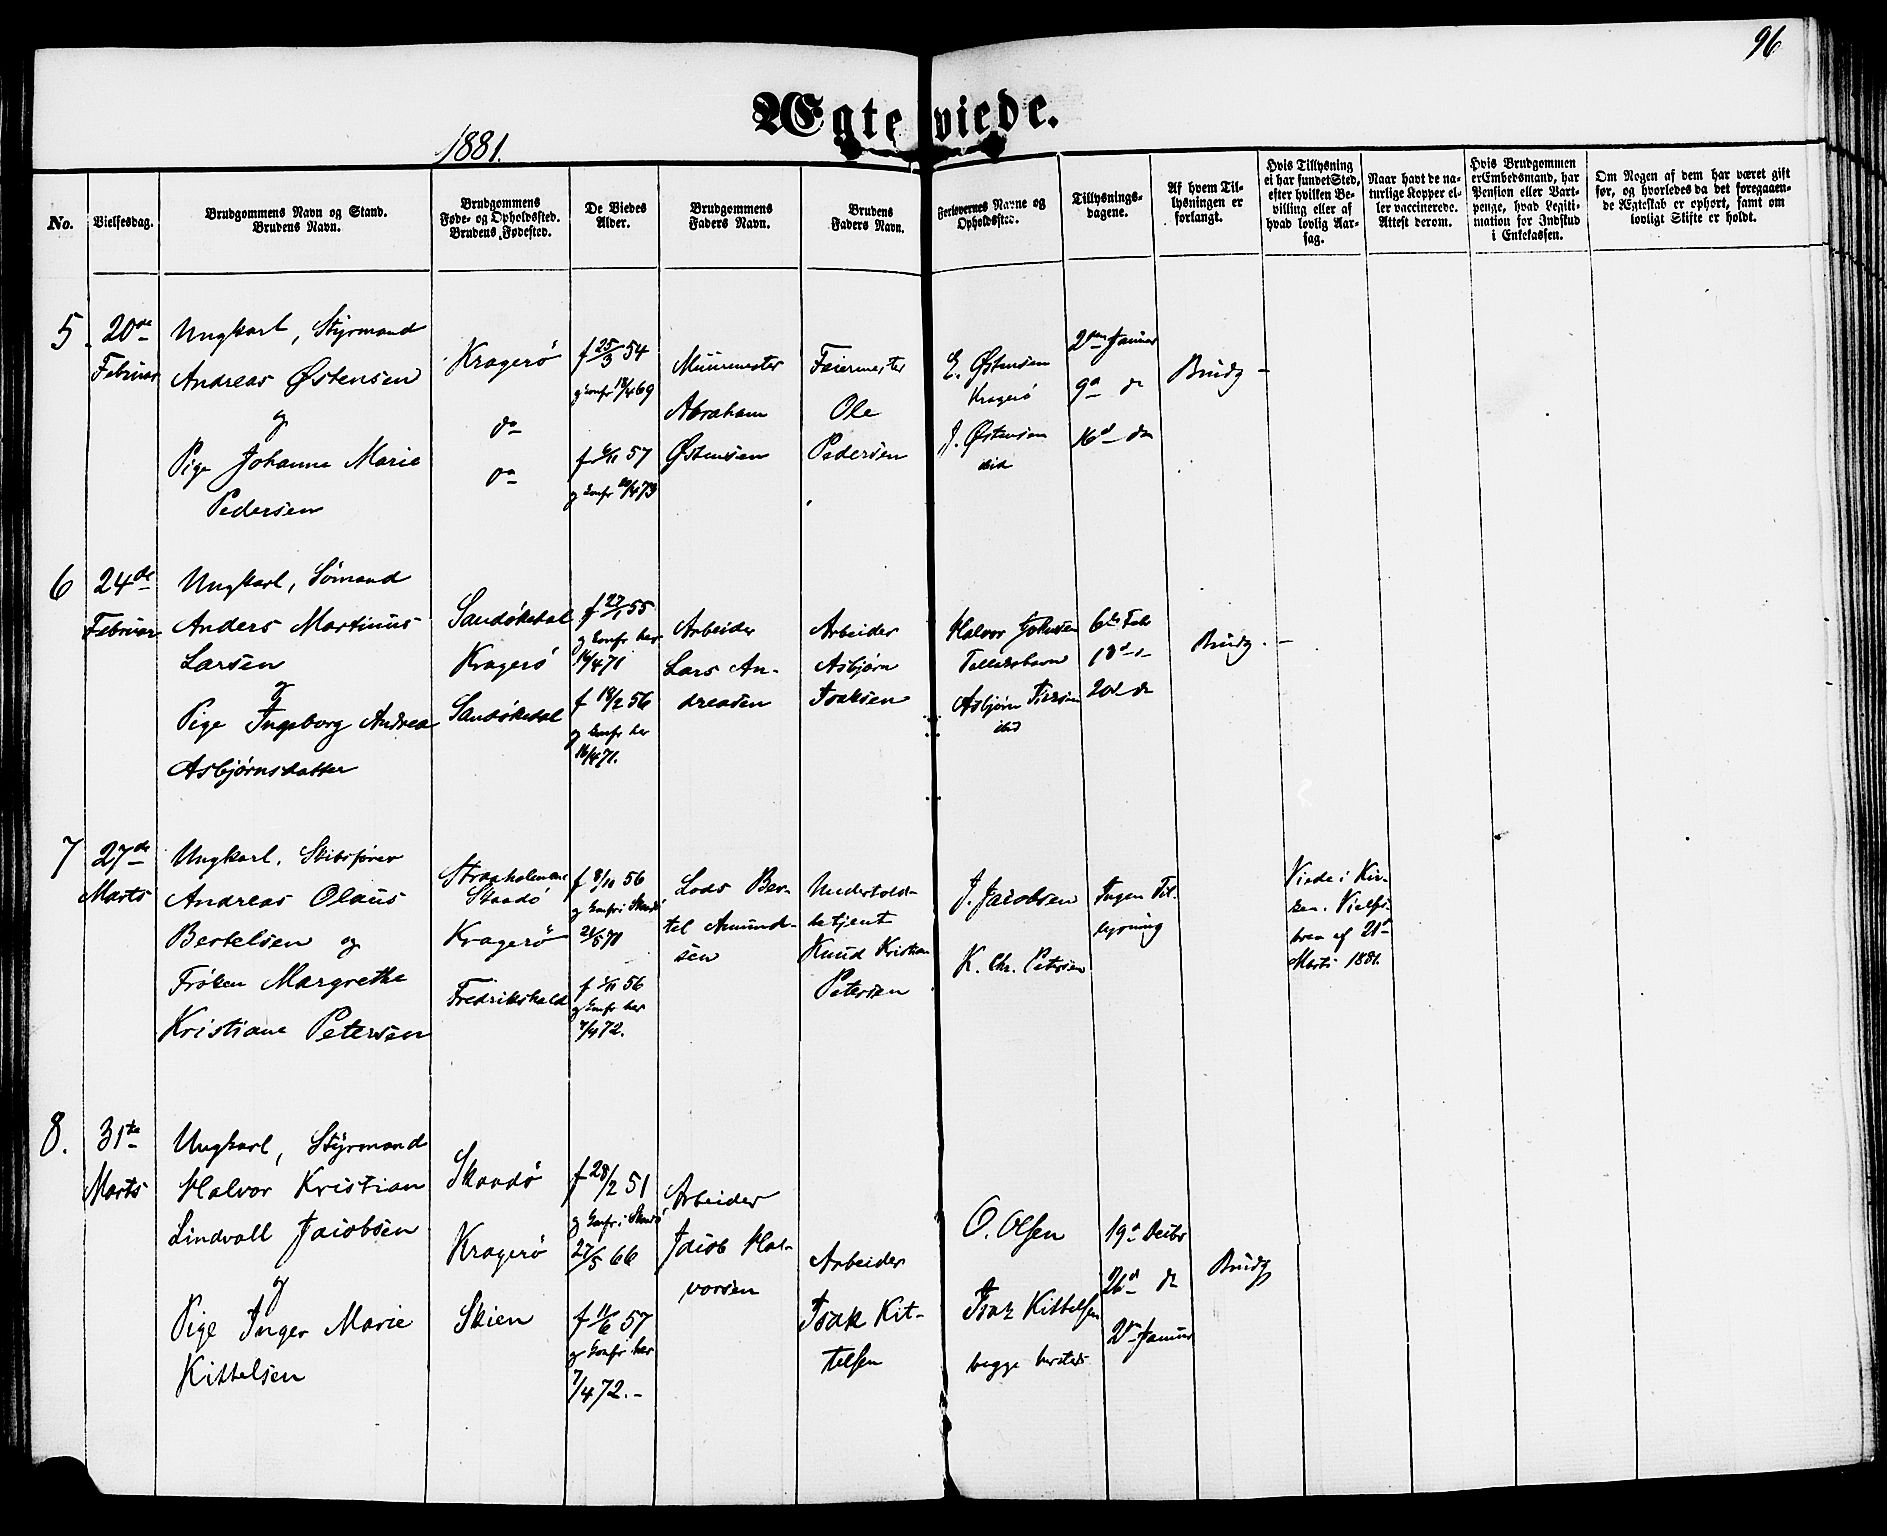 96
Ægteviede.
1881.
No.
Vielsesdag.
Brudgommens Navn og Stand.
Brudens Navn.
Brudgommens
Føde- og Opholdssted.
Brudens Fødested.
De Viedes
Alder.
Brudgommens
Faders Navn.
Brudens
Faders Navn.
Forlovernes Navne og
Opholdssted.
Tillysnings-
dagene.
Af hvem Til-
lysningen er
forlangt.
Hvis Tillysning
ei har fundet Sted,
efter hvilken Be-
villing eller af
hvad lovlig Aar-
sag.
Naar havt de na-
turlige Kopper el-
ler vaccinerede.
Attest derom.
Hvis Brudgommen
er Embedsmand, har
Pension eller Vart-
penge, hvad Legiti-
mation for Indskud
i Enkekassen.
Om Nogen af dem har været gift
før, og hvorledes da det foregaaen-
de Ægteskab er ophørt, samt om
lovligt Skifte er holdt.
5.
20de
Februar
Ungkarl, Styrmand
Andreas Østensen
og
Pige Johanne Marie
Pedersen
Kragerö
do
do
f 25/3 54
og Conf 18/4 69
f 57
og Conf 73
Muurmester
Abraham
Østensen
Feiermester
Ole
Pedersen
E. Østensen
Kragerö
J. Østensen
ibid
2den Januar
9d do
16d do
Brudg -
6
24de
Februar
Ungkarl, Sömand
Anders Martinus
Larsen
og
Pige Ingeborg Andrea
Asbjørnsdatter
Sandøkedal
Kragerö
Sandøkedal
f 27/1 55
og Confr her
16/4 71
f 18/2 56
og Confr her
16/4 71.
Arbeider
Lars An-
dreasen
Arbeider
Asbjørn
Isaksen
Halvor
Asbjørn
ibid
6te Feb
20d do
Brudg. -
7
27de
Marts
Ungkarl, Skibsfører
Andreas Olaus
Bertelsen og
Frøken Margrethe
Kristiane Petersen
Straaholmen
Skaadö
Kragerö
Fredrikshald
f 8/10 56
og Confr i Skaadö
21/5 71
f 56
og Confr her
7/4 72.
Lods Ber-
tel Amund-
sen
Undertold-
betjent
Knud Kristian
Petersen
J. Jacobsen
K. Chr. Petersen
Ingen Til-
lysning
Viede i Kir-
ken. Vielses-
brev af 21de
Marts 1881.
8.
31te
Marts
Ungkarl, Styrmand
Halvor Kristian
Lindvall Jacobsen
og
Pige Inger Marie
Kittelsen
Skaadö
Kragerö
Skien
f 28/2 51
og Confr i Skaadö
27/5 66
f 11/6 57
og Confr her
7/4 72.-
Arbeider
Jacob Hal-
vorsen
Arbeider
Isak Kit-
telsen
O. Olsen
Isak Kittelsen
begge hersteds
19d Decbr
26d do
2den Januar
Brudg